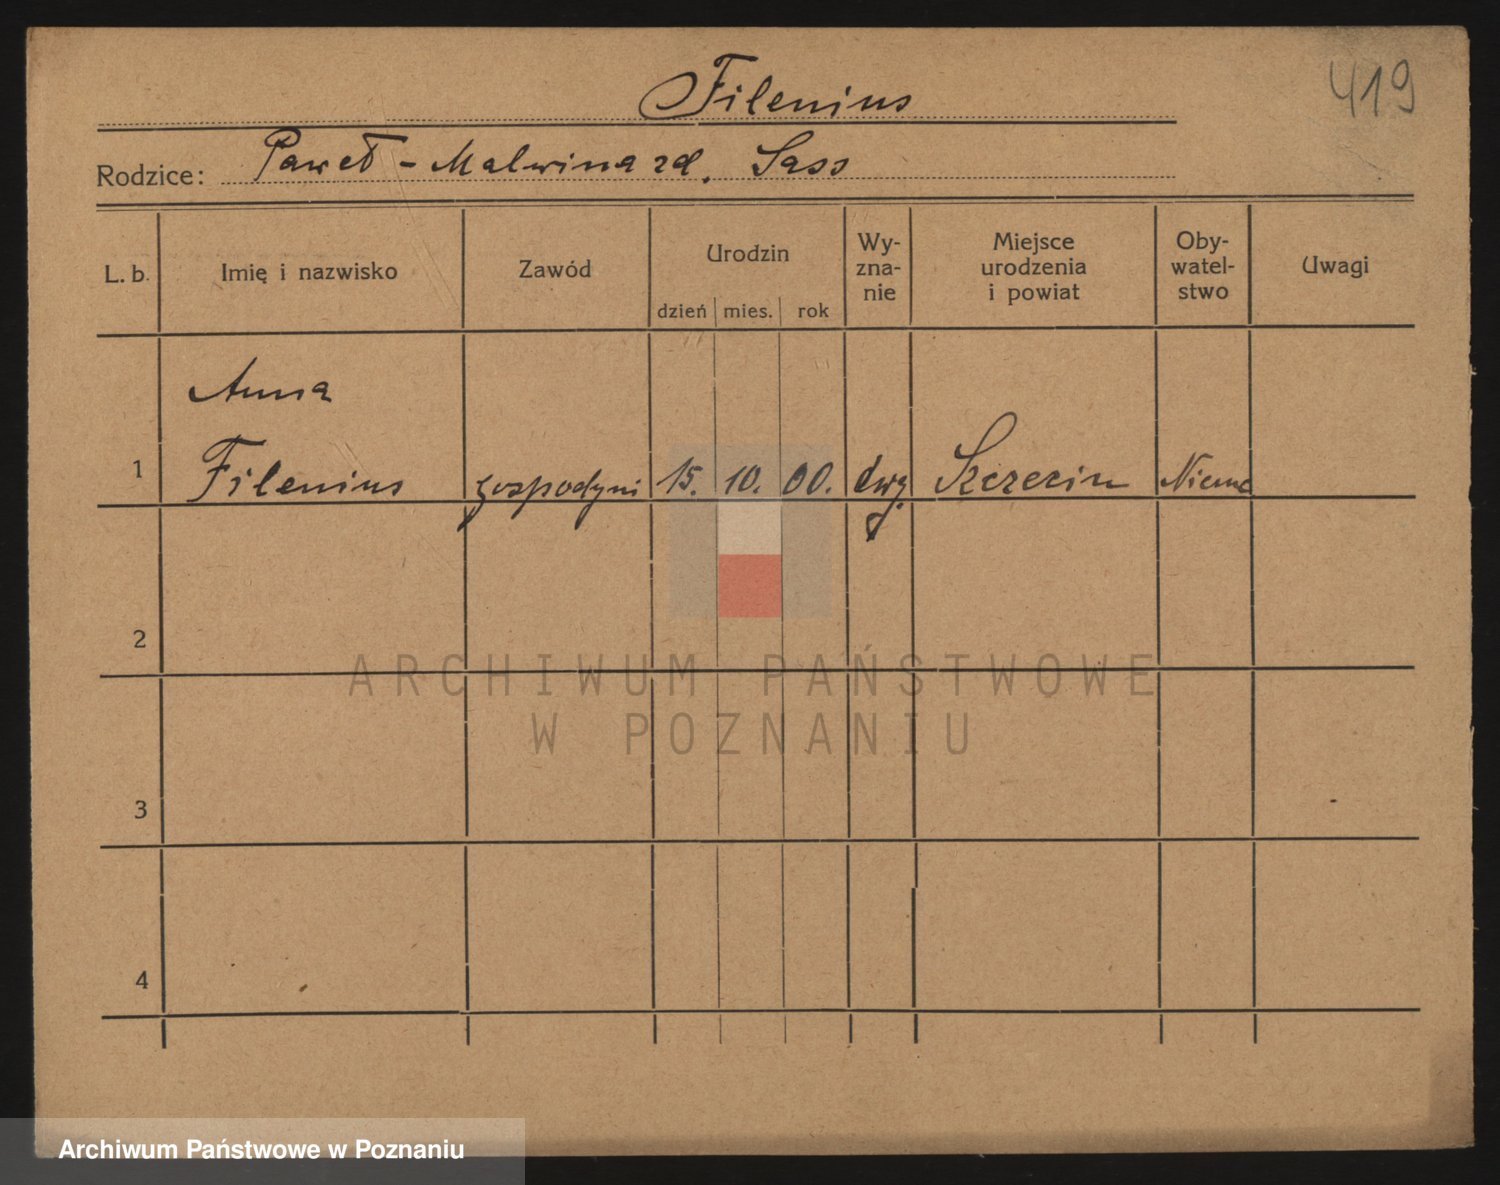 Filenius
419
Rodzice: Paweł - Malwina zd. Sass
L. b. Imię i nazwisko Zawód Urodzin dzień mies. rok Wy-
zna-
nie Miejsce
urodzenia
i powiat Oby-
watel-
stwo Uwagi
Anna
1 Filenius gospodyni 15. 10. 00. ewg. Szczecin Niemc
2
ARCHIWUM PAŃSTWOWE
W POZNANIU
3
4
Archiwum Państwowe w Poznaniu